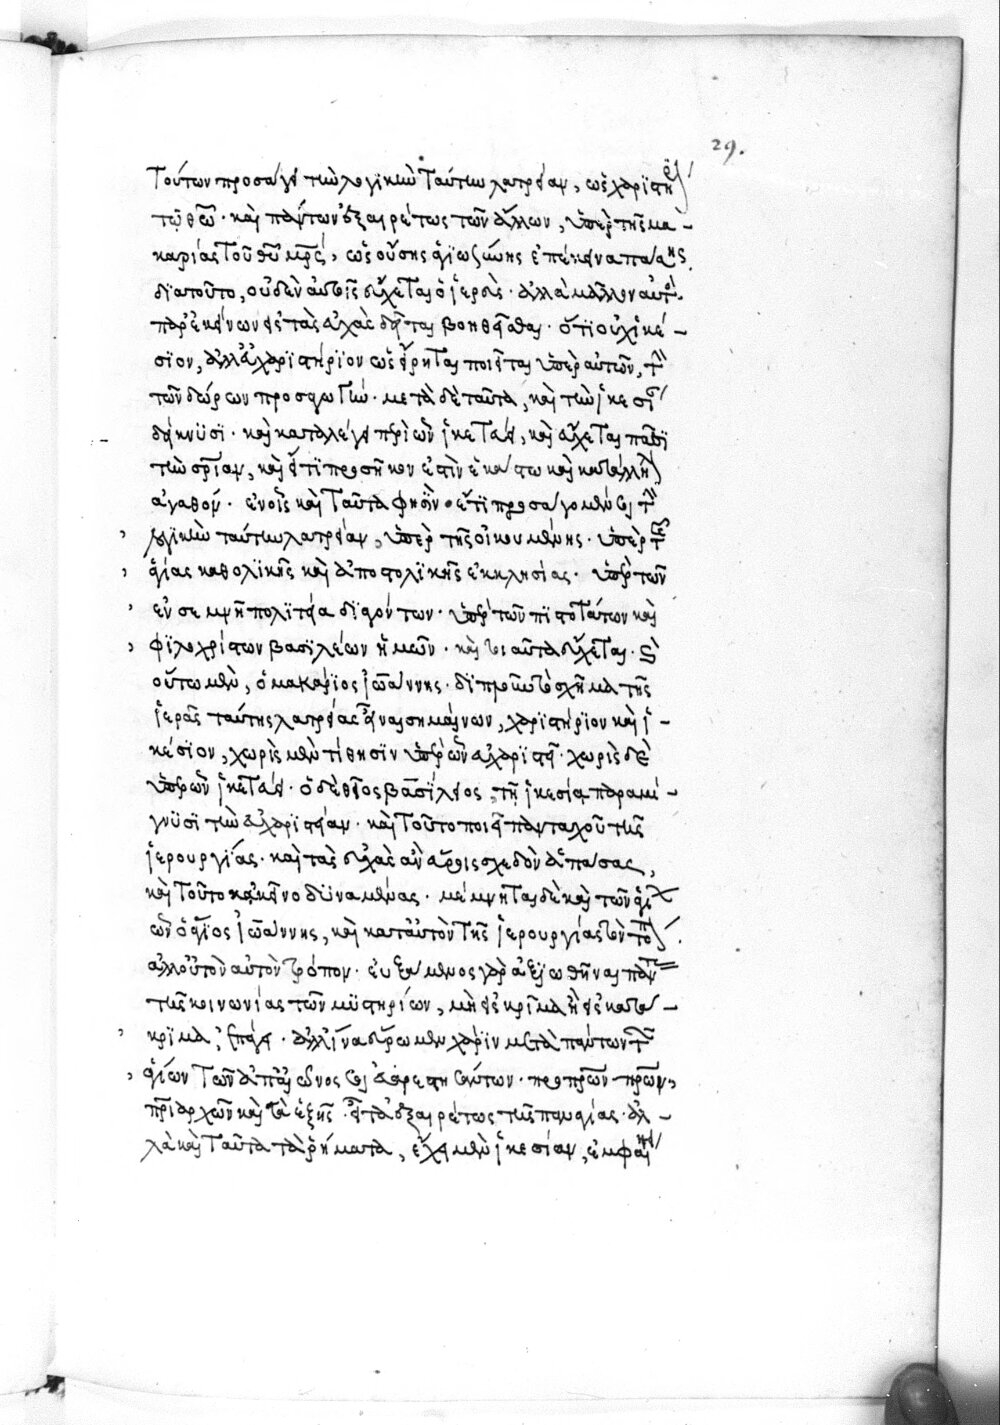 29.
τούτων προσάγει τὴν λογικὴν ταύτην λατρείαν, ὡς χαριστή(ριον)
τῷ θῶ. καὶ πάντων ἐξαιρέτως τῶν ἄλλων, ὑπὲρ τῆς μα-
καρίας τοῦ θῦ μρς, ὡς οὔσης ἁγιωσύνης ἐπέκεινα πάσης.
διατοῦτο, οὐδὲν αὐτοῖς εὔχεται ὁ ἱερεὺς. ἀλλὰ μᾶλλον αὐτὸς
παρ' ἐκείνων εἰς τὰς εὐχὰς δεῖται βοηθεῖσθαι. ὅτι οὐχ ἱκέ-
σϊον, ἀλλ' εὐχαριστήριον ὡς εἴρηται ποιεῖται ὑπὲρ αὐτῶν, τὴν
τῶν δώρων προσαγωγήν. μετὰ δὲ ταῦτα, καὶ τὴν ἱκεσίαν
δείκνυσϊ. καὶ καταλέγει περὶ ὧν ἱκετεύει, καὶ εὔχεται πᾶσϊ
τὴν σρίαν, καὶ ὅτϊ προσῆκον ἐστὶν ἑκάστω καὶ κατάλληλον
ἀγαθόν. ἐν οἷς καὶ ταῦτα φησὶν· ἔτϊ προσάγομέν σοι τὴν
λογικὴν ταύτην λατρείαν, ὑπὲρ τῆς οἰκουμένης. ὑπὲρ τῆς
ἁγίας καθολϊκῆς καὶ ἀποστολϊκῆς ἐκκλησίας. ὑπὲρ τῶν
ἐν σεμνῆ πολϊτεία διαγόντων. ὑπὲρ τῶν πϊστοτάτων καὶ
φϊλοχρίστων βασϊλέων ἡμῶν. καὶ τοιαῦτα εὔχεται. καὶ
οὕτω μὲν, ὁ μακάρϊος ἰωάννης. διπλοῦν τὸ σχῆμα τῆς
ἱερᾶς ταύτης λατρείας εἶναι σημαίνων, χαριστήριον καὶ ἱ-
κέσϊον, χωρὶς μὲν τίθησϊν ὑπὲρ ὧν εὐχαριστεῖ. χωρὶς δὲ
ὑπὲρ ὧν ἱκετεύει. ὁ δὲ θεῖος βασίλειος, τῆ ἱκεσία παραμί-
γνϋσϊ τὴν εὐχαριστίαν. καὶ τοῦτο ποιεῖ πανταχοῦ τῆς
ἱερουργίας. καὶ τὰς εὐχὰς ἂν εὕροις σχεδὸν ἁπάσας,
καὶ τοῦτο κἀκεῖνο δϋναμένας. μέμνηται δὲ καὶ τῶν ἁγί(ων)
ὧν ὁ ἅγιος ἰωάννης, καὶ κατ' αὐτὸν τῆς ἱερουργίας τὸν τόπον.
ἀλλ' οὐ τὸν αὐτὸν τρόπον. εὐξάμενος γὰρ ἀξιωθῆναι πάντας
τῆς κοινωνίας τῶν μϋστηρίων, μὴ εἰς κρῖμα ἢ εἰς κατά-
κρϊμα, ἐπάγει. ἀλλ' ἵνα εὕρωμεν χάρϊν μετὰ πάντων τῶν
ἁγίων τῶν ἀπ' αἰῶνος σοι εὐαρεστησάντων. προπατόρων. πρων,
πριαρχῶν καὶ τὰ ἑξῆς. εἶτα ἐξαιρέτως τῆς παναγίας. ἀλ-
λὰ καὶ ταῦτα τὰ ῥήματα, ἔχει μὲν ἱκεσίαν, ἐμφαίνει